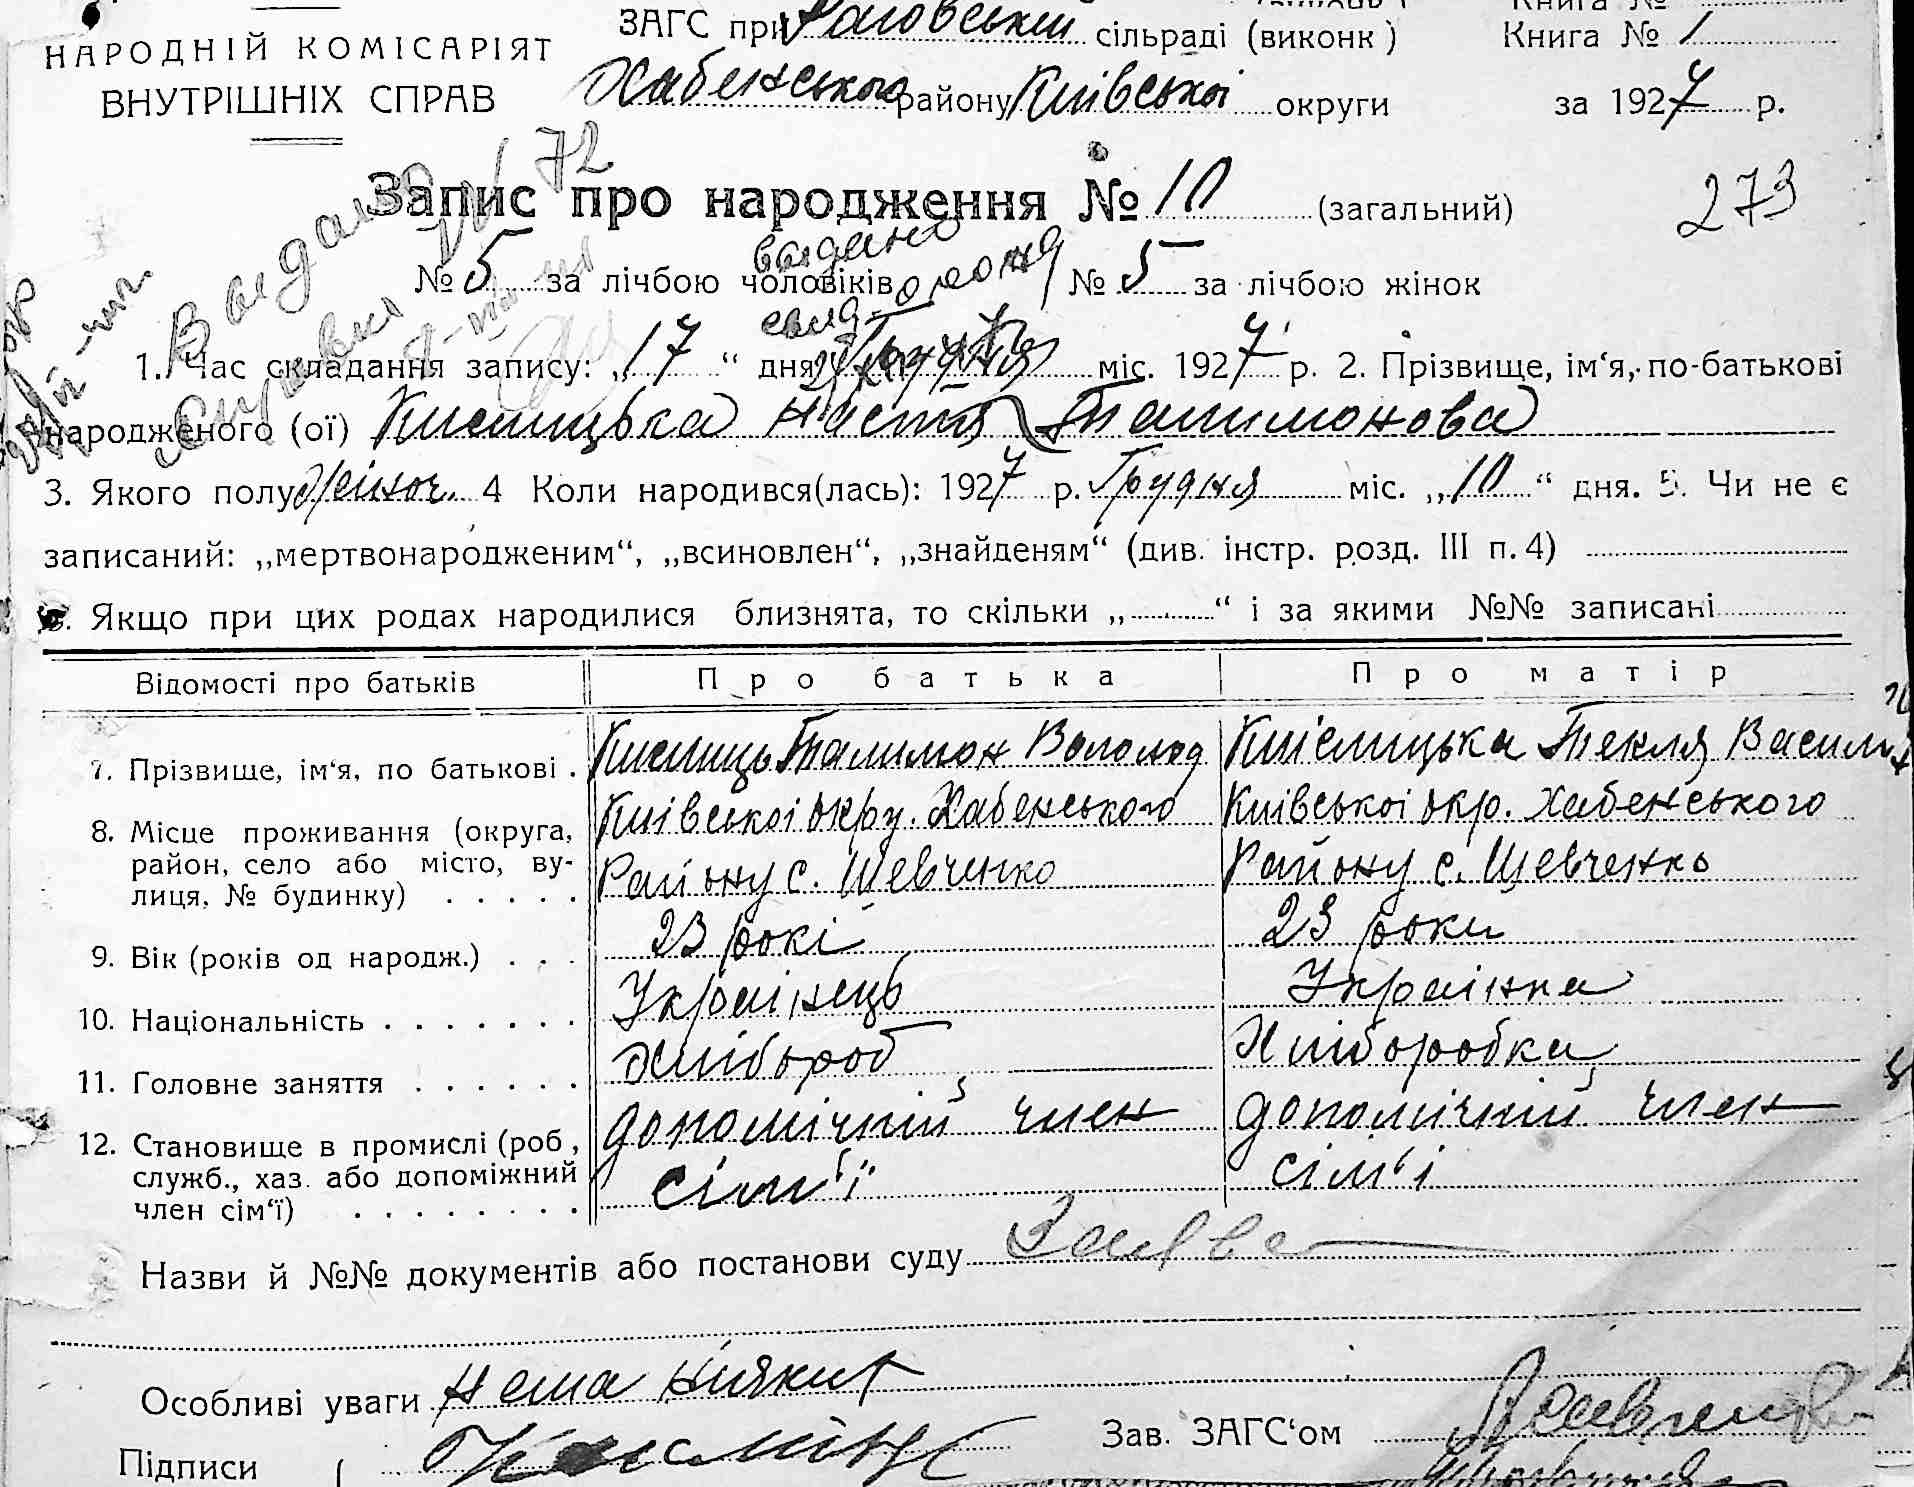 НАРОДНІЙ КОМІСАРІЯТ
ВНУТРІШНІХ СПРАВ
ЗАГС при Раговській сільраді (виконк)
Хабенського району Київської округи
Книга № 1
за 1927 р.
72
Запис про народження № 10 (загальний)
273
№ 5 за лічбою чоловіків № 5 за лічбою жінок
видано
1. Час складання запису: „17“ дня Грудня міс. 1927 р. 2. Прізвище, ім‘я, по-батькові
народженого (ої) Киелицька Настя Талимонова
3. Якого полу жіноч. 4 Коли народився(лась): 1927 р. Грудня міс. „10“ дня. 5. Чи не є
записаний: „мертвонародженим“, „всиновлен“, „знайденям“ (див. інстр. розд. III п. 4)
Якщо при цих родах народилися близнята, то скільки „ “ і за якими №№ записані
Відомості про батьків Про батька Про матір
7. Прізвище, ім‘я, по батькові . Киелиць Талимон Володод Киіелицька Текля Васил
8. Місце проживання (округа, район, село або місто, вулиця, № будинку) Київської окру. Хабенського Київської окр. Хабенського
Району с. Шевченко Району с. Шевченко
9. Вік (років од народж.) 23 рокі 23 роки
10. Національність Українець Українка
11. Головне заняття Хлібороб Хліборобка
12. Становище в промислі (роб, служб., хаз. або допоміжний член сім‘ї) допомічний член допомічний член
сім‘ї сім‘і
Назви й №№ документів або постанови суду
Особливі уваги нема ніяких
Підписи Зав. ЗАГС‘ом